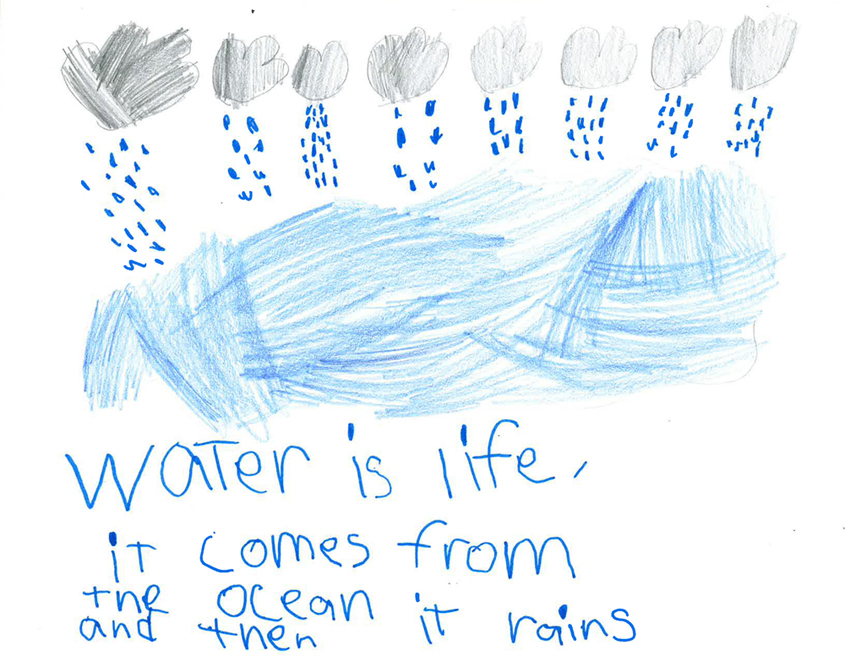 Water is life,
it comes from
the ocean
and then it rains